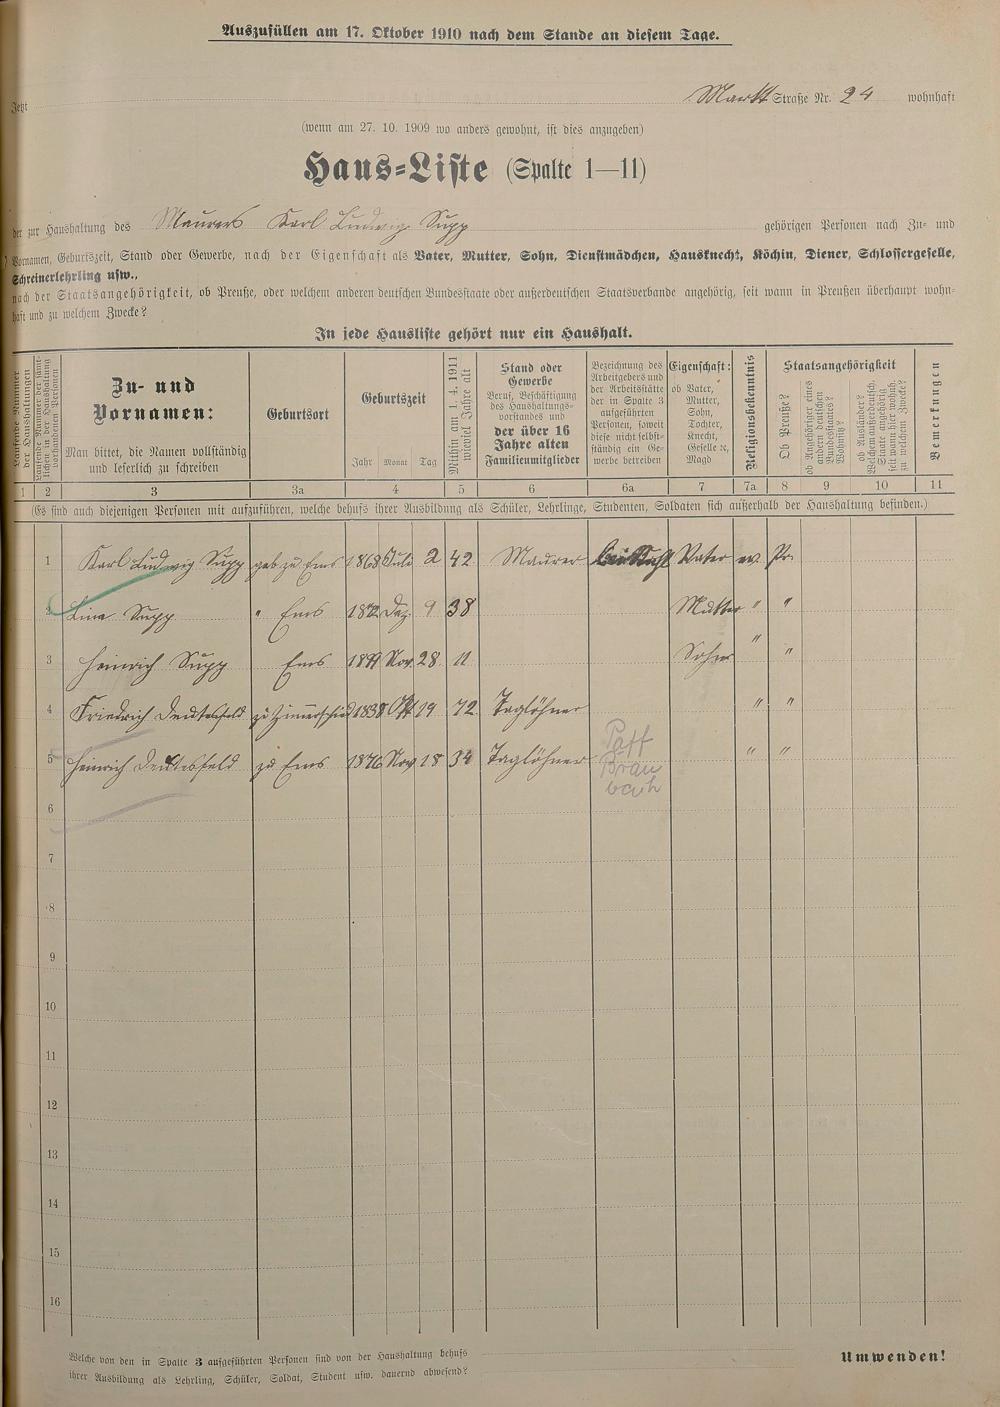 Auszufüllen am 17. Oktober 1910 nach dem Stande an diesem Tage.
Jetzt Markt Straße Nr. 24 wohnhaft
(wenn am 27. 10. 1909 wo anders gewohnt, ist dies anzugeben)
Haus-Liste (Spalte 1—11)
der zur Haushaltung des Maurers Karl Ludwig Supp gehörigen Personen nach Zu- und
Vornamen, Geburtszeit, Stand oder Gewerbe, nach der Eigenschaft als Vater, Mutter, Sohn, Dienstmädchen, Hausknecht, Köchin, Diener, Schlossergeselle,
Schreinerlehrling usw.,
nach der Staatsangehörigkeit, ob Preuße, oder welchem anderen deutschen Bundesstaate oder außerdeutschen Staatsverbande angehörig, seit wann in Preußen überhaupt wohn-
haft und zu welchem Zwecke?
In jede Hausliste gehört nur ein Haushalt.
Laufende Nummer der Haushaltungen
Laufende Nummer der sämt-
lichen in der Haushaltung
vorhandenen Personen
Zu- und
Vornamen:
Man bittet, die Namen vollständig
und leserlich zu schreiben
Geburtsort
Geburtszeit
Jahr Monat Tag
Mithin am 1. 4. 1911
wieviel Jahre alt
Stand oder
Gewerbe
Beruf, Beschäftigung
des Haushaltungs-
vorstandes und
der über 16
Jahre alten
Familienmitglieder
Bezeichnung des
Arbeitgebers und
der Arbeitsstätte
der in Spalte 3
aufgeführten
Personen, soweit
diese nicht selbst-
ständig ein Ge-
werbe betreiben
Eigenschaft:
ob Vater,
Mutter,
Sohn,
Tochter,
Knecht,
Geselle ꝛc,
Magd
Religionsbekenntnis
Staatsangehörigkeit
Ob Preuße?
ob Angehöriger eines
andern deutschen
Bundesstaates?
Wohnitz?
ob Ausländer?
Welchem außerdeutsch.
Staate angehörig
seit wann hier wohnh.
zu welchem Zwecke?
Bemerkungen
1 2 3 3a 4 5 6 6a 7 7a 8 9 10 11
(Es sind auch diejenigen Personen mit aufzuführen, welche behufs ihrer Ausbildung als Schüler, Lehrlinge, Studenten, Soldaten sich außerhalb der Haushaltung befinden.)
1 Karl Ludwig Supp geb zu Ems 1868 Juli 2 42 Maurer Vater ev. Pr.
2 Lina Supp " Ems 1872 Dez. 9 38 Mutter " "
3 Heinrich Supp Ems 1899 Nov. 28 11 Sohn " "
4 Friedrich Deutesfeld zu Zimmerschied 1838 Okt 19 72 Taglöhner " "
5 Heinrich Deutesfeld zu Ems 1876 Nov 18 34 Taglöhner Patt Braubach " "
6
7
8
9
10
11
12
13
14
15
16
Welche von den in Spalte 3 aufgeführten Personen sind von der Haushaltung behufs
ihrer Ausbildung als Lehrling, Schüler, Soldat, Student usw. dauernd abwesend?
Umwenden!